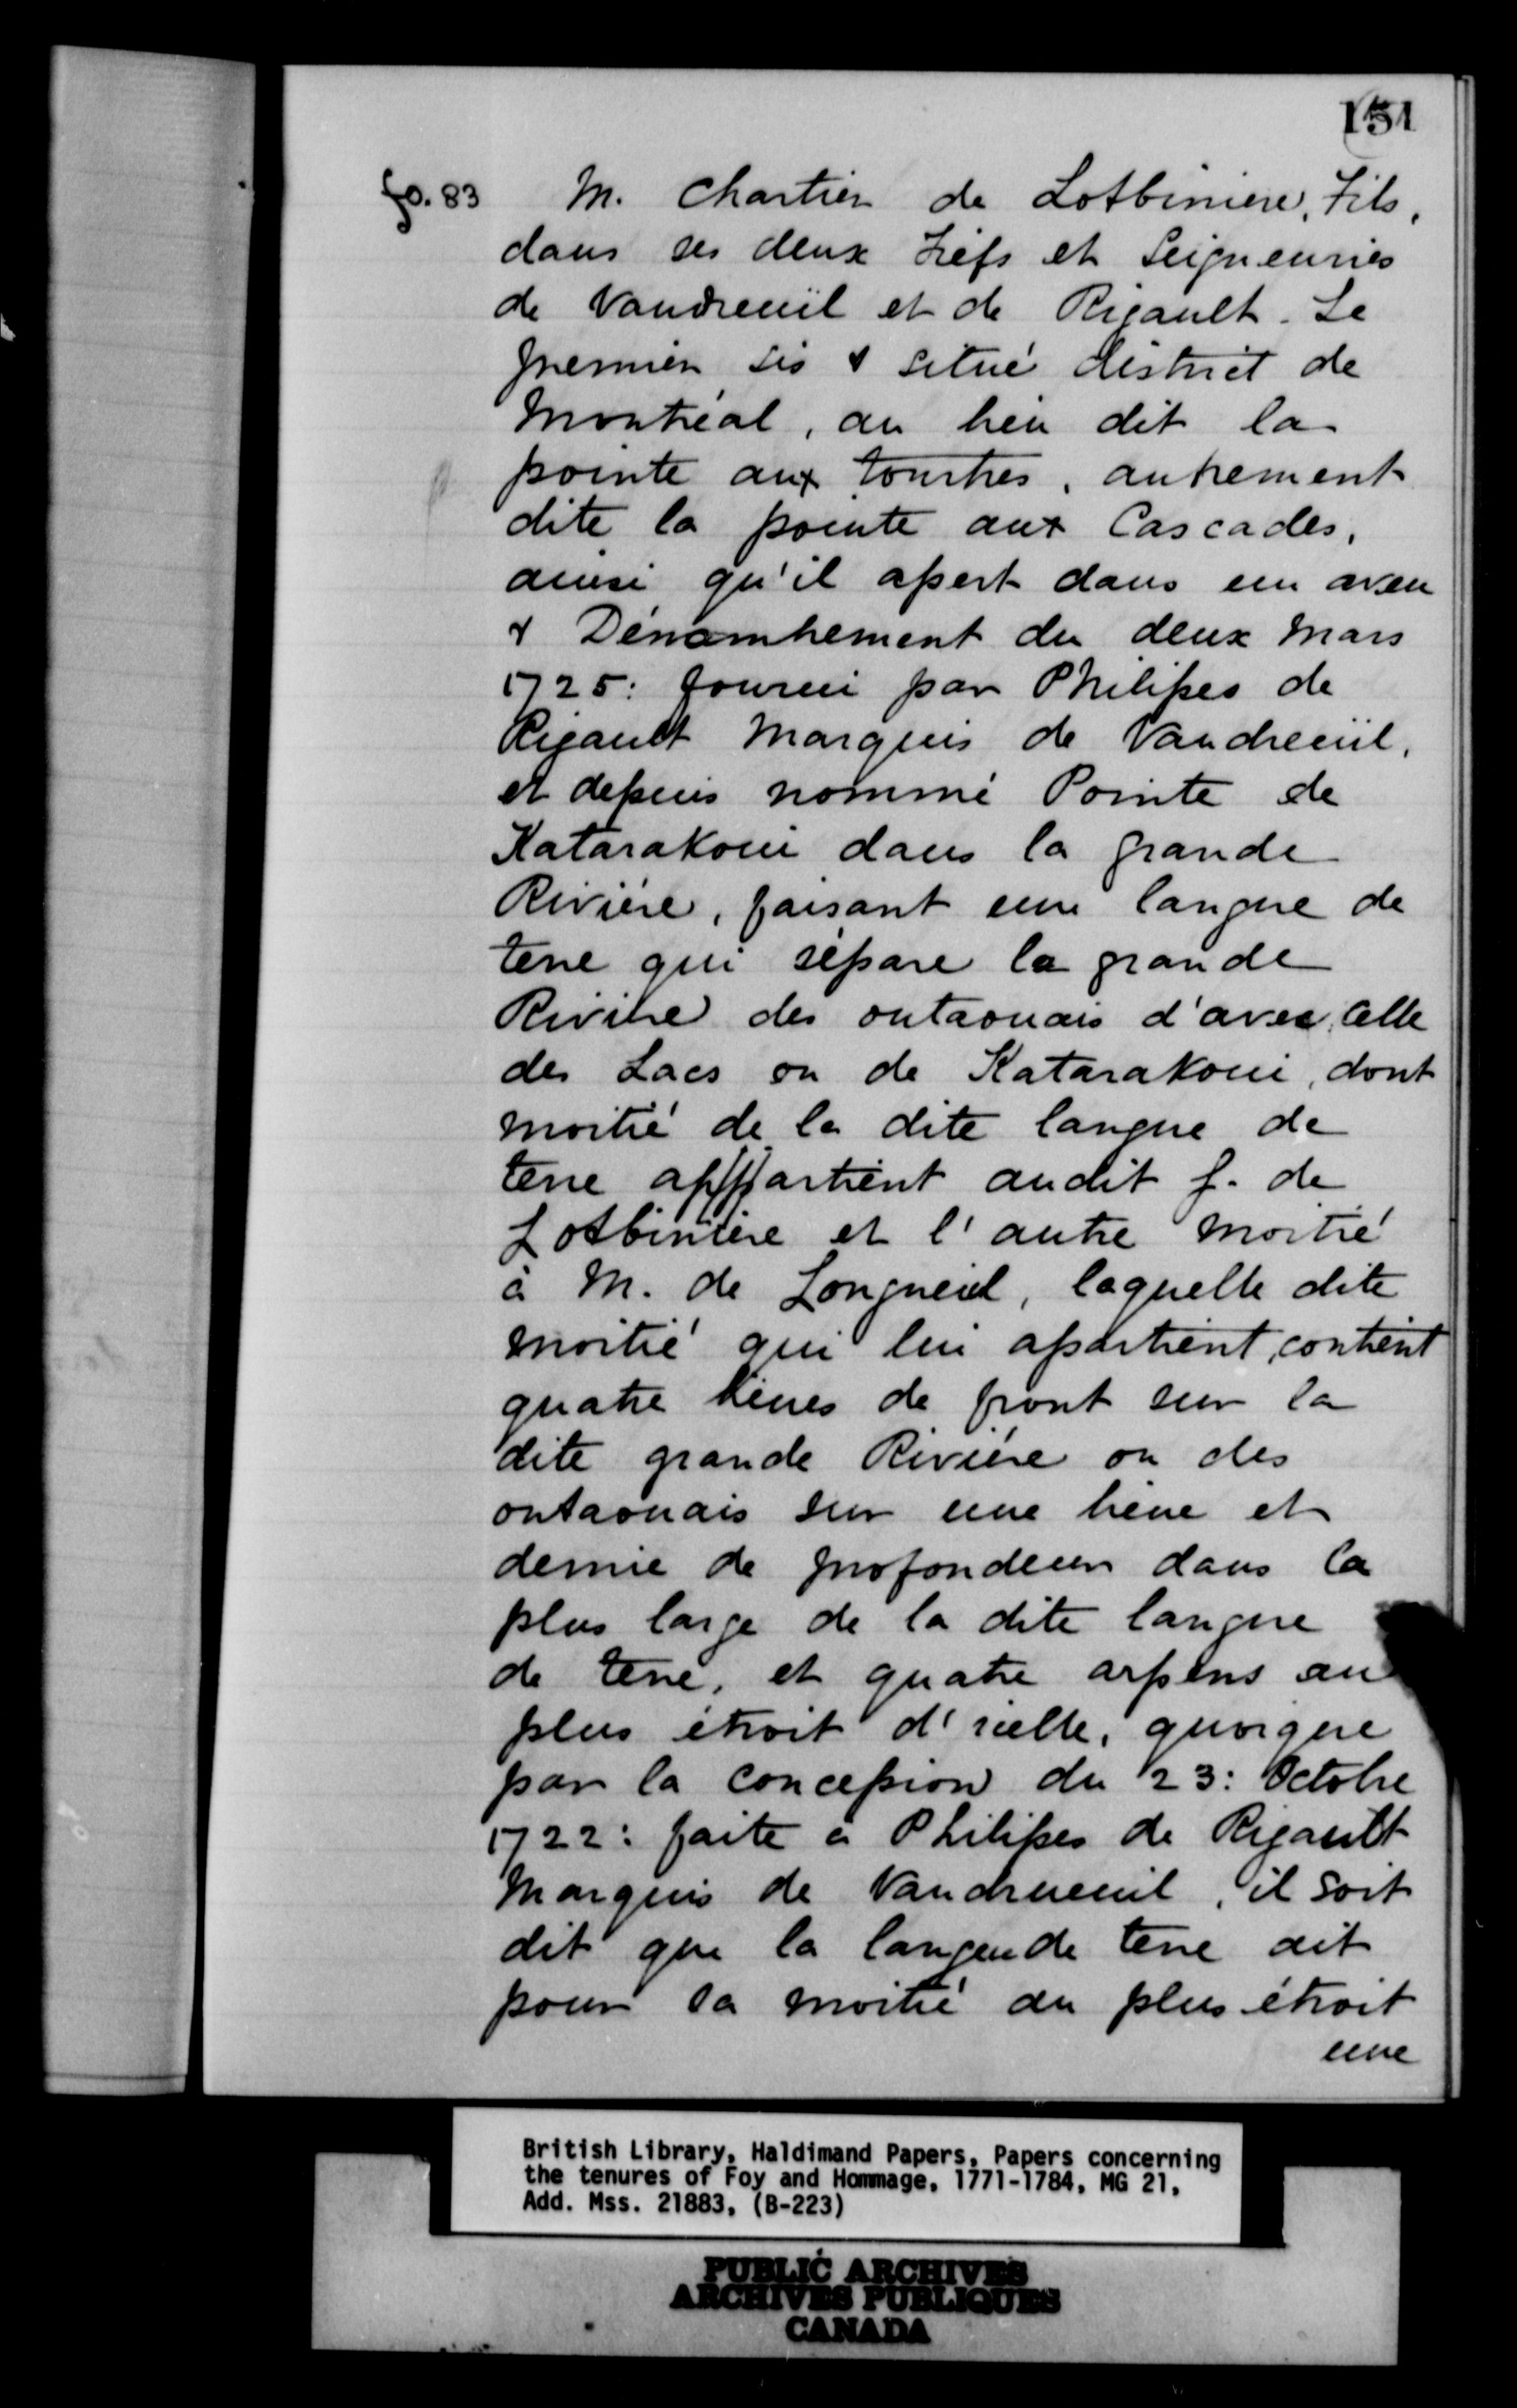 151
fo. 83 M. Chartier de Lotbiniere, Fils,
dans ses deux Fiefs et Seigneuries
de Vaudreuil et de Rigault. Le
premier sis & situé district de
Montréal, au lieu dit la
pointe aux tourtres, autrement
dite la pointe aux Cascades,
ainsi qu'il apert dans un aveu
& Dénombrement du deux Mars
1725: fourni par Philipes de
Rigault Marquis de Vaudreuil,
et depuis nommé Pointe de
Katarakoui dans la grande
Riviére, faisant une langue de
terre qui sépare la grande
Riviere des outaouais d'avec celle
des Lacs ou de Katarakoui, dont
moitié de la dite langue de
terre appartient audit S. de
Lotbiniere et l'autre moitié
à M. de Longueil, laquelle dite
moitié qui lui apartient, contient
quatre lieues de front sur la
dite grande Riviére ou des
outaouais sur une lieue et
demie de profondeur dans la
plus large de la dite langue
de terre, et quatre arpens au
plus étroit d'icelle, quoique
par la concession du 23: Octobre
1722: faite à Philipes de Rigault
Marquis de Vaudrueuil, il soit
dit que la langue de terre ait
pour sa moitié au plus étroit
une
British Library, Haldimand Papers, Papers concerning
the tenures of Foy and Hommage, 1771-1784, MG 21,
Add. Mss. 21883, (B-223)
PUBLIC ARCHIVES
ARCHIVES PUBLIQUES
CANADA